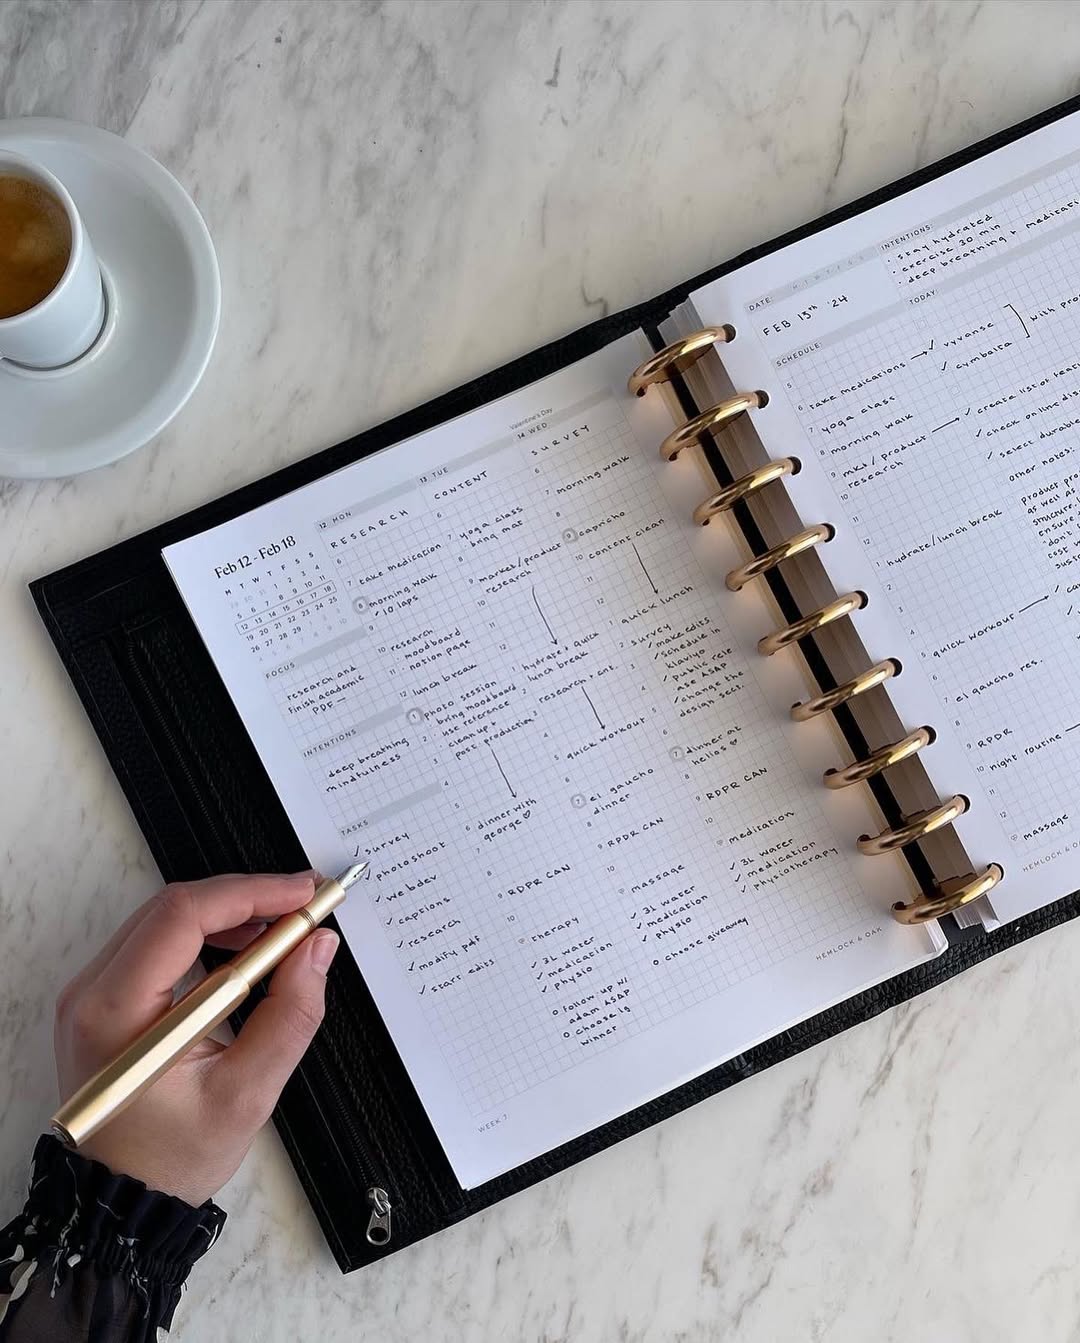 Feb 12 - Feb 18
M T W T F S S
29 30 31 1 2 3 4
5 6 7 8 9 10 11
12 13 14 15 16 17 18
19 20 21 22 23 24 25
26 27 28 29
FOCUS
research and
finish academic
PDF
INTENTIONS
deep breathing
mindfulness
TASKS
✓ survey
✓ photoshoot
✓ web dev
✓ captions
✓ research
✓ modify pdf
✓ start edits
WEEK 7
12 MON
RESEARCH
6
7 take medication
8 morning walk
✓ 10 laps
9
10 research
· moodboard
11 · notion page
12 lunch break
1 photo session
· bring moodboard
2 · use reference
· clean up +
3 post production
4
5
6 dinner with
george ♡
7
8
9 RDPR CAN
10
♡ therapy
✓ 3L water
✓ medication
✓ physio
o follow up w/
adam ASAP
o choose ig
winner
13 TUE
CONTENT
6
7 yoga class
8 bring mat
9 market/product
research
10
11
12
1 hydrate + quick
lunch break
2
3 research + cnt.
4
5 quick workout
6
7 el gaucho
dinner
8
9 RPDR CAN
10
♡ massage
✓ 3L water
✓ medication
✓ physio
o choose giveaway
Valentine's Day
14 WED
SURVEY
6
7 morning walk
8
9 capricho
10 content clean
11
12
1 quick lunch
2 survey
✓ make edits
3 ✓ schedule in
klaviyo
4 ✓ public rele
ase ASAP
5 ✓ change the
design sect.
6
7 dinner at
helios ♡
8
9 RDPR CAN
10
♡ meditation
✓ 3L water
✓ medication
✓ physiotherapy
HEMLOCK & OAK
DATE: M T W T F S S
FEB 13th '24
INTENTIONS:
· stay hydrated
· exercise 30 min
· deep breathing +
SCHEDULE:
TODAY
5
6 take medications → ✓ vyvanse
✓ cymbalta
with
7 yoga class
8 morning walk
9 mkt/product
research
✓ create list of
✓ check online
✓ select
other notes:
10
11
12
1 hydrate/lunch break
product
as well as
ensure
cost
2
3
4
5 quick workout
6
7 el gaucho res.
8
9 RPDR
10 night routine
11
12
♡ massage
HEMLOCK & OAK